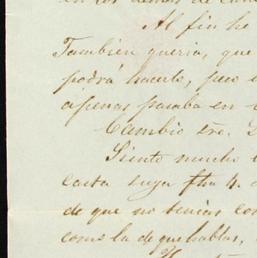 en los demas de
Al fin he
Tambien queria, que
podrá hacerlo, pero
apenas pasaba en
Cambio
Siento mucho
carta suya fha 4.
de que no tenias
como la de que hablas,